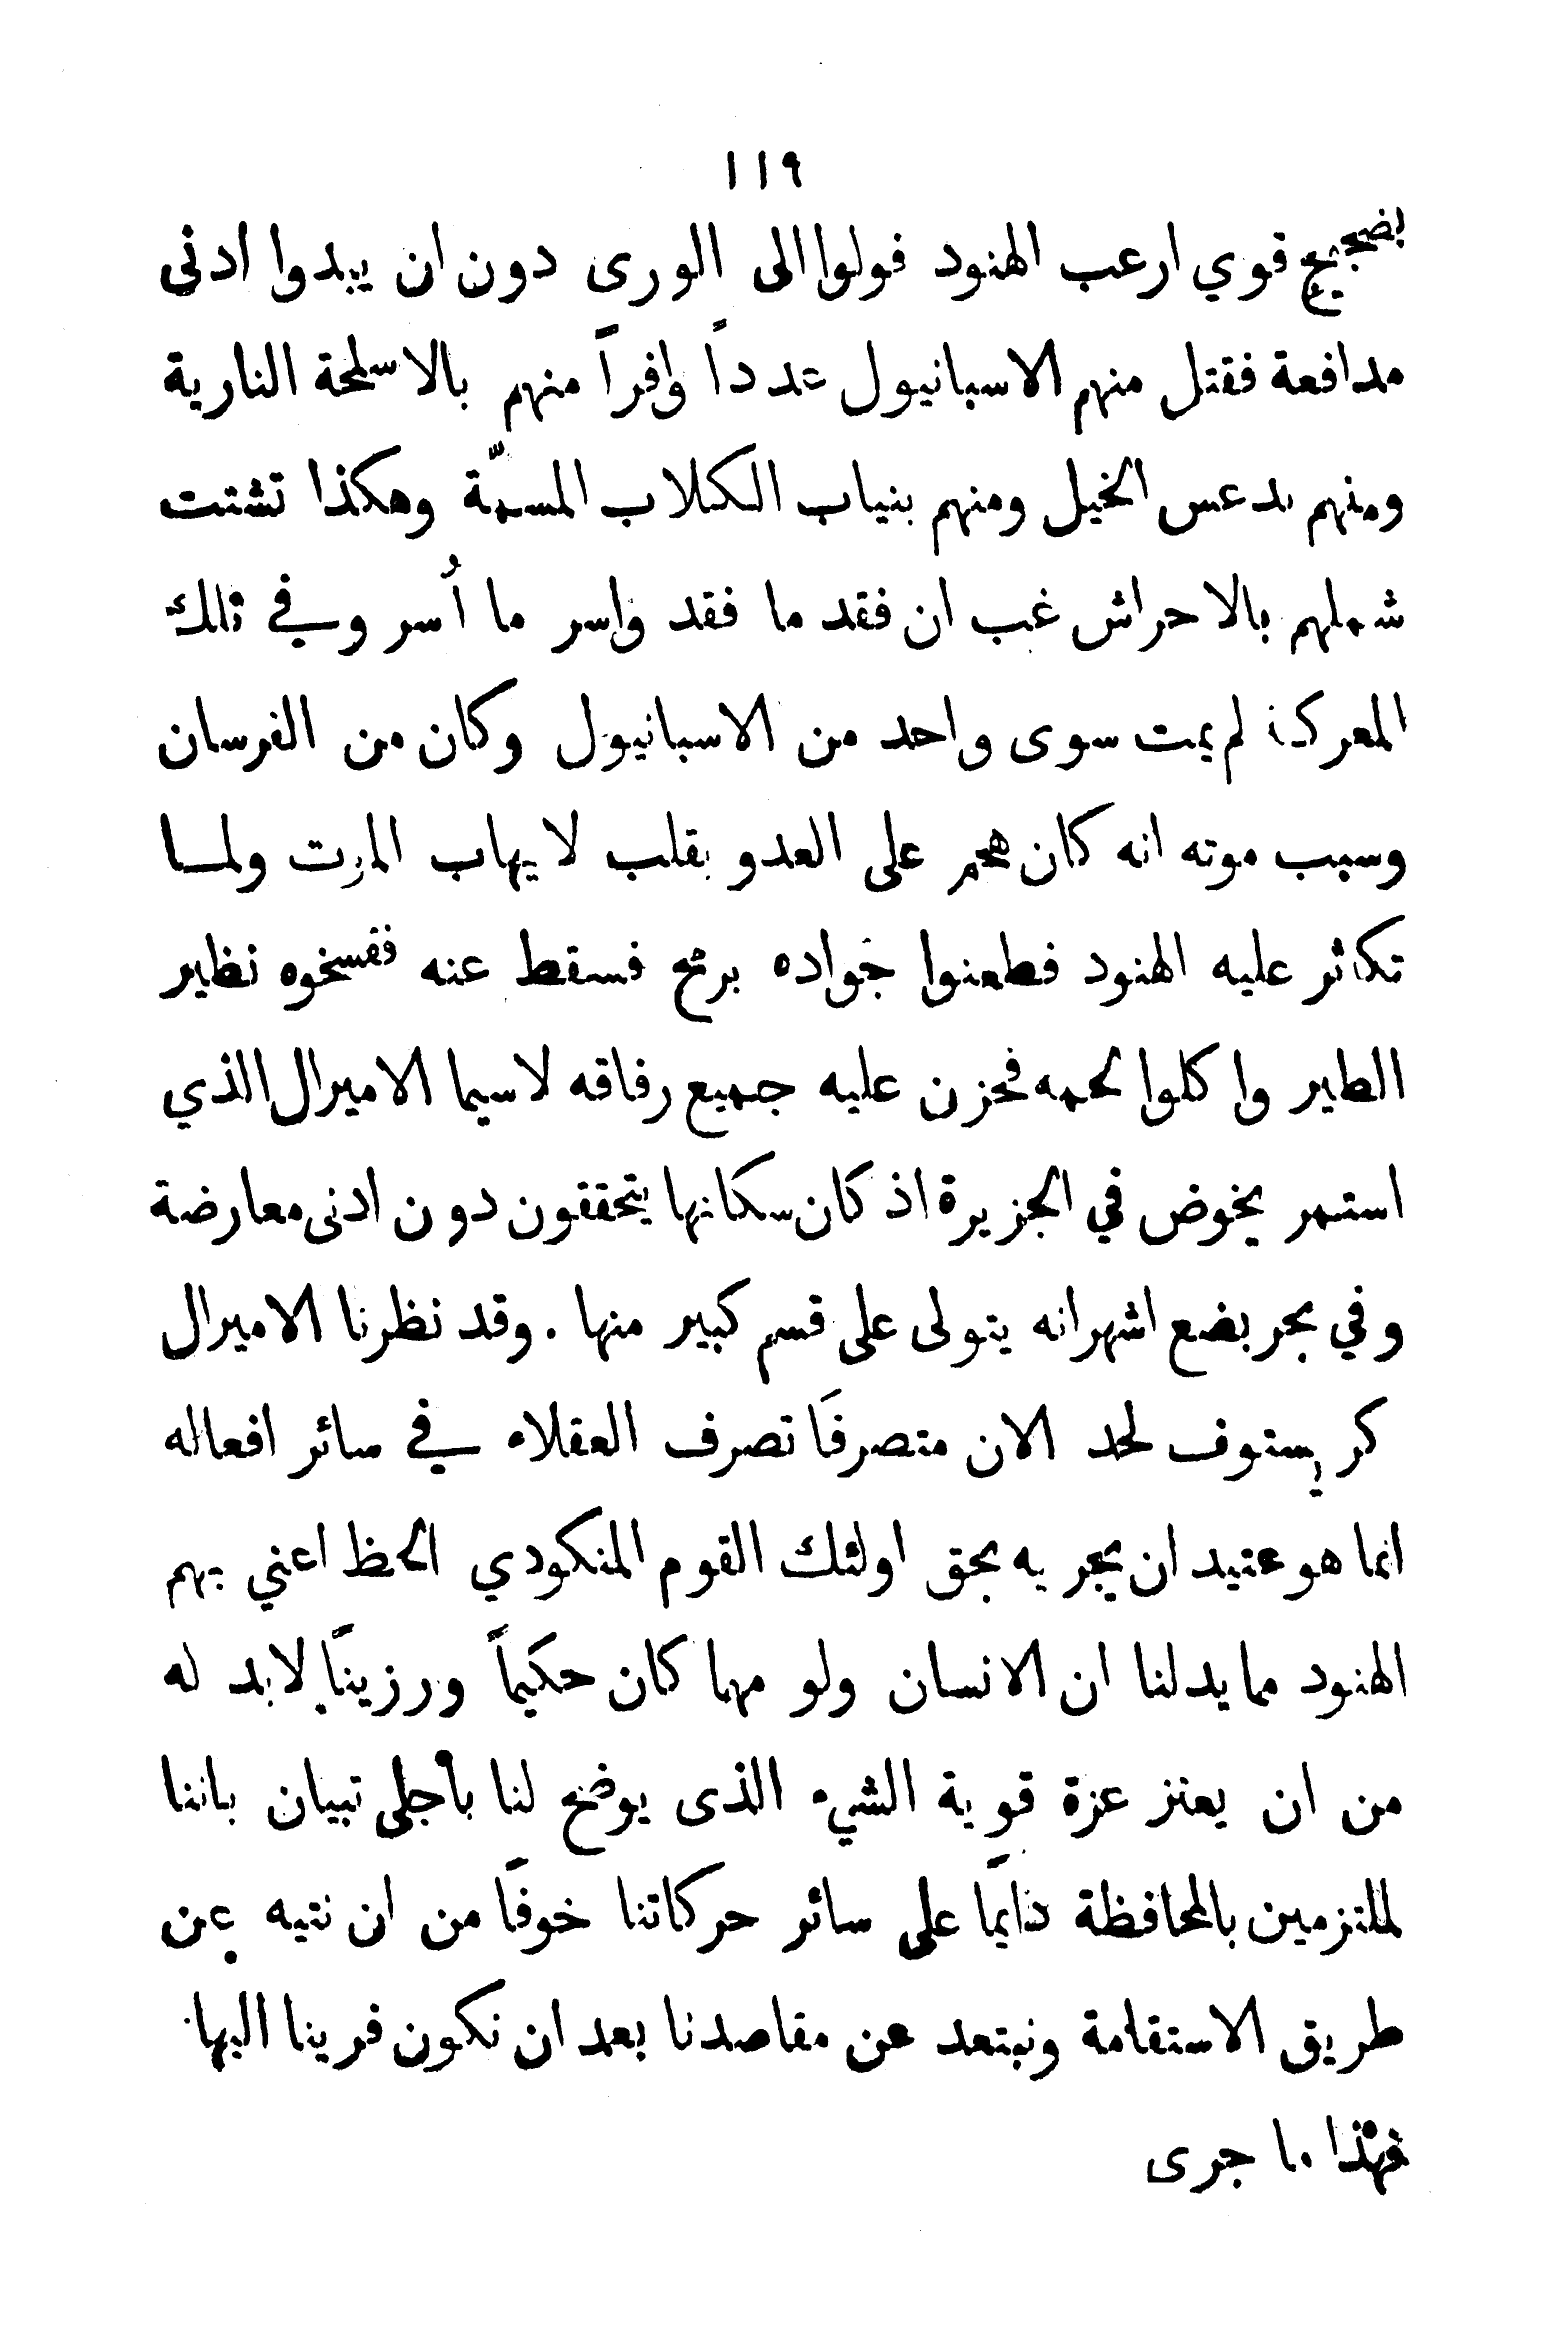 ١١٩
بضجيجٍ قوي ارعب الهنود فولوا الى الورى دون ان يبدوا ادنى
مدافعة فقتل منهم الاسبانيول عدداً وافراً منهم بالاسلحة النارية
ومنهم بدعس الخيل ومنهم بنياب الكلاب المسمّة وهكذا تشتت
شملهم بالاحراش غب ان فقد ما فقد واسر ما اُسر وفي تلك
المعركة لم يمت سوى واحد من الاسبانيول وكان من الفرسان
وسبب موته انه كان هجم على العدو بقلب لا يهاب الموت ولما
تكاثر عليه الهنود فطعنوا جواده برمح فسقط عنه ففسخوه نظير
الطير واكلوا لحمه فحزن عليه جميع رفاقه لاسيما الاميرال الذي
استمر يخوض في الجزيرة اذ كان سكانها يتحققون دون ادنى معارضة
وفي بحر بضع اشهر انه يتولى على قسم كبير منها . وقد نظرنا الاميرال
كريستوف لحد الان متصرفاً تصرف العقلاء في سائر افعاله
انما هو عتيد ان يجريه بحق اولئك القوم المنكودي الحظ اعني بهم
الهنود مما يدلنا ان الانسان ولو مهما كان حكيماً ورزيناً لا بد له
من ان يعتز عزة قوية الشيء الذى يوضح لنا بأجلى تبيان باننا
لملتزمين بالمحافظة دايماً على سائر حركاتنا خوفاً من ان نتيه عن
طريق الاستقامة ونبتعد عن مقاصدنا بعد ان نكون قرينا اليها
فهذا ما جرى